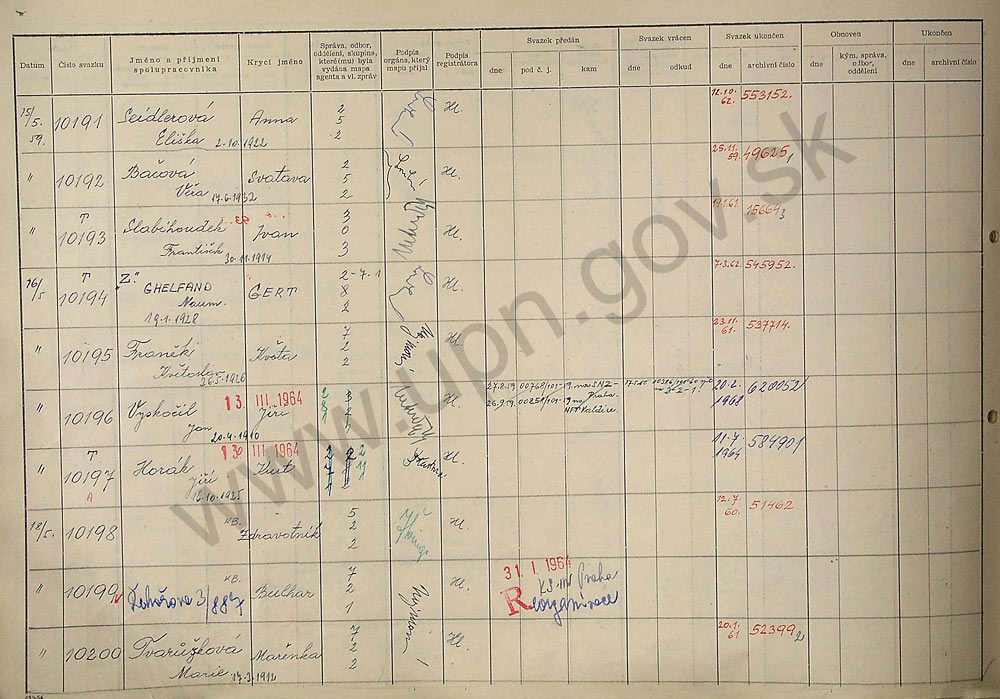 Datum
Číslo svazku
Jméno a příjmení
spolupracovníka
Krycí jméno
Správa, odbor,
oddělení, skupina,
které(mu) byla
vydána mapa
agenta a vl. zpráv
Podpis
orgána, který
mapu přijal
Podpis
registrátora
Svazek předán
dne
pod č. j.
kam
Svazek vrácen
dne
odkud
Svazek ukončen
dne
archivní číslo
Obnoven
dne
kým, správa,
odbor,
oddělení
Ukončen
dne
archivní číslo
15/5. 59. 10191 Seidlerová Anna 2 Hl. 12.10. 553152.
Eliška 2-10-1922 5 62.
2
" 10192 Bačová Svatava 2 Hl. 25.11. 49625/1
Věra 17-6-1932 5 59.
2
T
" 10193 Slabihoudek Ivan 3 Hl. 19.1.61. 15664/3
František 30-11-1914 0
3
T
16/5 10194 „Z." GHELFAND GERT 2-7.1 Hl. 7.3.62. 545952.
Naum. 8
19-1-1928 2
" 10195 Franěk Květa 7 Hl. 23.11. 537714.
Květoslav 26.5-1926 2 61.
2
" 10196 Vyskočil 13. III. 1964 Jiří 3 Hl. 20.2. 620052/
Jan 20-4-1910 2 1968
1
Praha.
T
" 10197 Horák 30 III 1964 Kurt 2 Hl. 11.7 584901
A Jiří 16.10.1925 1964
18/5. 10198 KB. Zdravotník 5 Hl. 12.7. 51462
2 60.
2
" 10199 KB. Bulhar 7 Hl. 31. I. 1964
2 KS-MV Praha
1 Reorganisace
" 10200 Tvarůžková Marěnka 7 Hl. 20.1. 52399/2
Marie 17-2-1912 2 61
2
www.upn.gov.sk